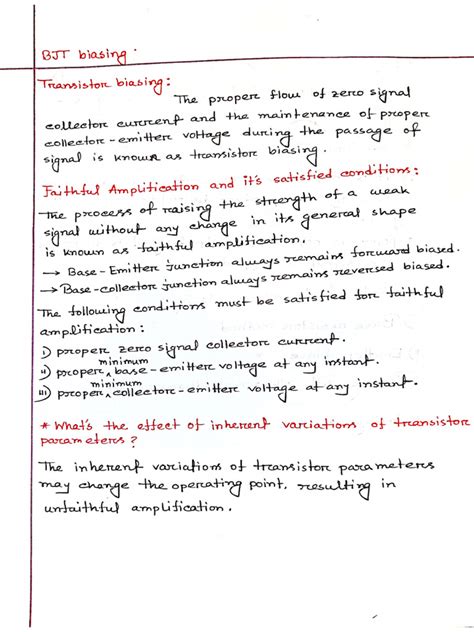 BJT biasing.
Transistor biasing:
The proper flow of zero signal
collector current and the maintenance of proper
collector-emitter voltage during the passage of
signal is known as transistor biasing.
Faithful Amplification and it's satisfied conditions:
The process of raising the strength of a weak
signal without any change in its general shape
is known as faithful amplification.
→ Base-Emitter junction always remains forward biased.
→ Base-collector junction always remains reversed biased.
The following conditions must be satisfied for faithful
amplification:
i) proper zero signal collector current.
ii) proper minimum base-emitter voltage at any instant.
iii) proper minimum collector-emitter voltage at any instant.
* What's the effect of inherent variations of transistor
parameters?
The inherent variations of transistor parameters
may change the operating point, resulting in
unfaithful amplification.